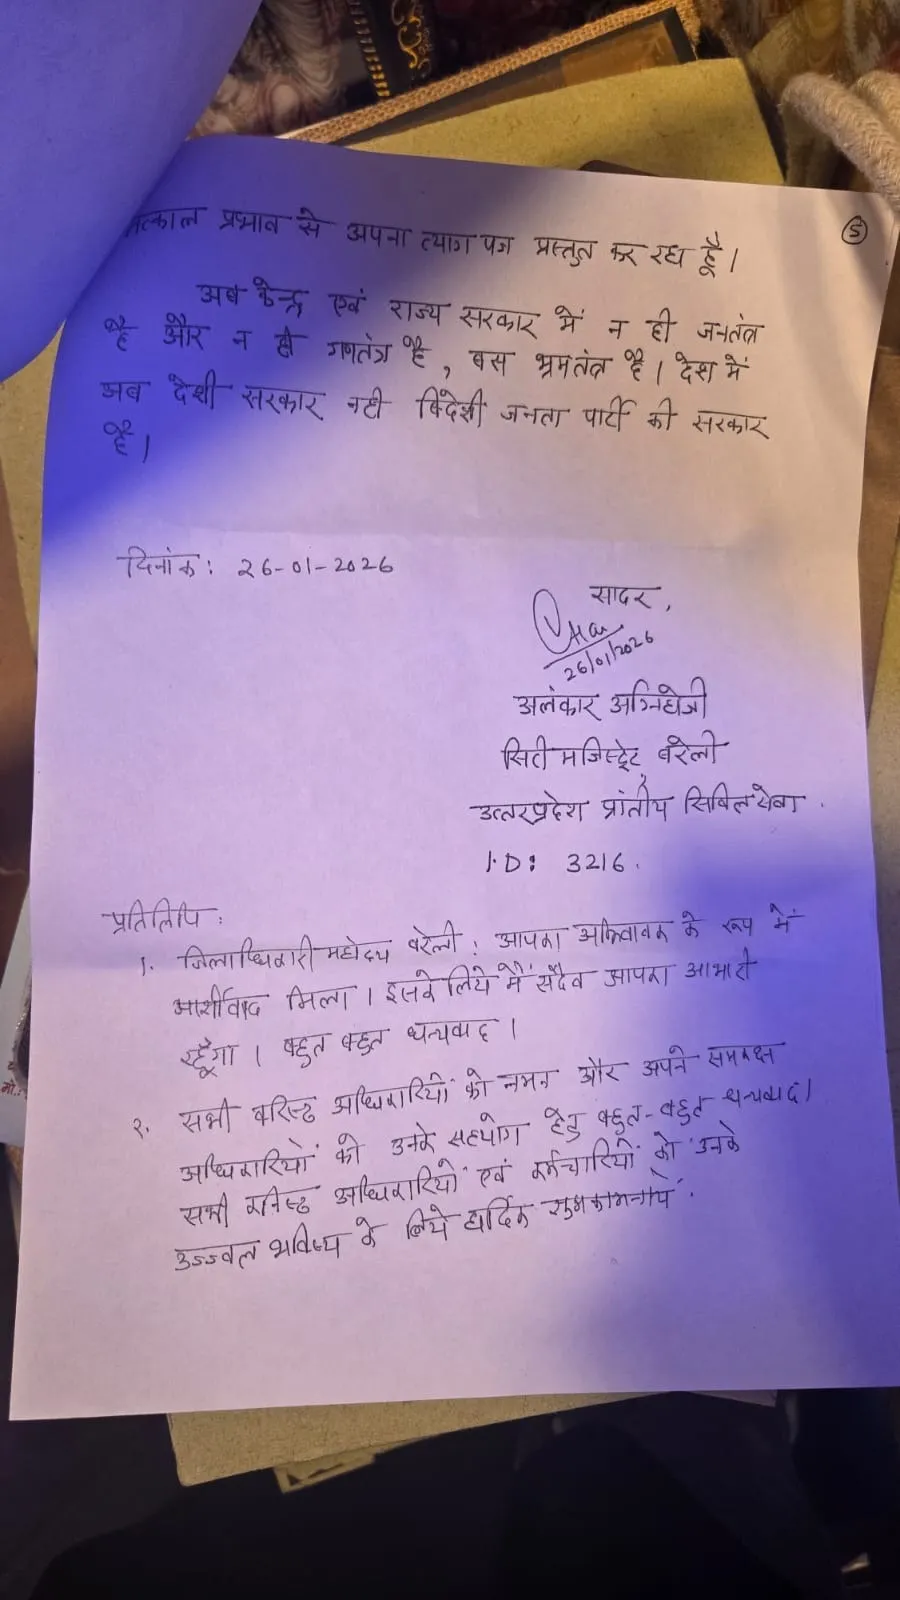 तत्काल प्रभाव से अपना त्याग पत्र प्रस्तुत कर रहा हूँ।
5
अब केन्द्र एवं राज्य सरकार में न ही जनतंत्र
है और न ही गणतंत्र है, बस भ्रमतंत्र है। देश में
अब देशी सरकार नही विदेशी जनता पार्टी की सरकार
है।
दिनांक: 26-01-2026
सादर,
26/01/2026
अलंकार अग्निहोत्री
सिटी मजिस्ट्रेट, बरेली
उत्तरप्रदेश प्रांतीय सिविल सेवा.
I.D: 3216.
प्रतिलिपि:
1. जिलाधिकारी महोदय बरेली: आपका अभिवावक के रूप में
आर्शीवाद मिला। इसके लिये मैं सदैव आपका आभारी
रहूँगा। बहुत बहुत धन्यवाद।
२. सभी वरिष्ठ अधिकारियों को नमन और अपने समकक्ष
अधिकारियों को उनके सहयोग हेतु बहुत-बहुत धन्यवाद।
सभी कनिष्ठ अधिकारियों एवं कर्मचारियों को उनके
उज्जवल भविष्य के लिये हार्दिक शुभकामनायें.
मो.: